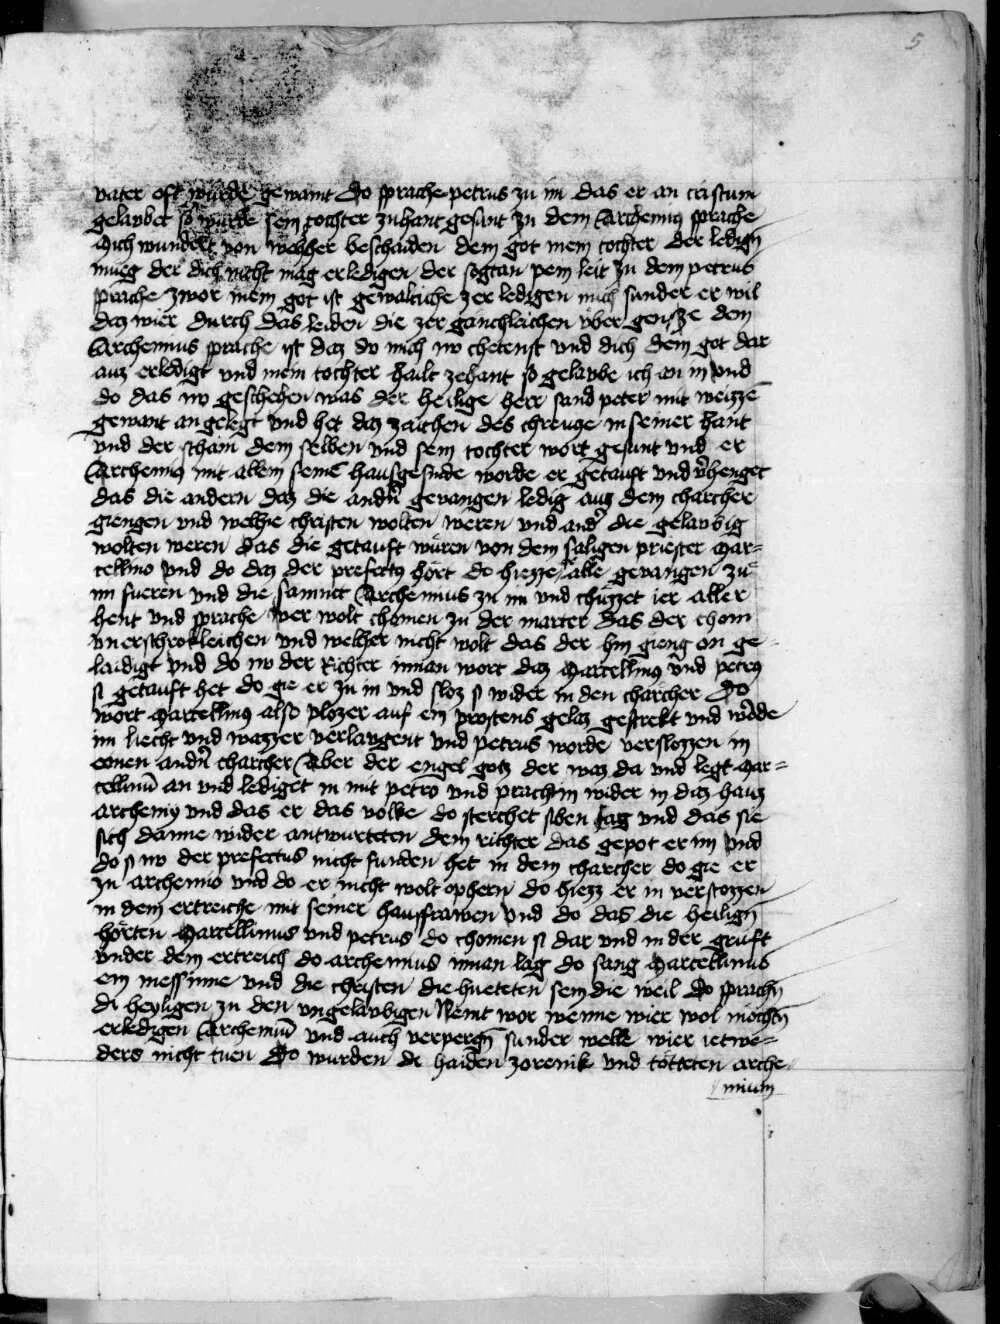 5
vater oft wurde gewaint Do sprache petrus zu im das er an cristum
gelaubet so wurde sein tochter zuhant gesunt zu dem Archemius sprache
Mich wundert von welher beschaiden dein got mein tochter der ledign̄
mueg der dich nicht mag erledigen der sogtan pein leit zu dem petrus
sprache zwor mein got ist gewaltiche zer ledigen mich sunder er wil
daz wier durch das leiden die zer ganchleichen uber gensze dem
Archemius sprache ist daz du mich nv chetenst und dich dem got dar
auz erledigt und mein tochter hailt zehant so gelaube ich an in und
do das nv geschehen was der heilige herr sand peter mit weizzē
gewant an gelegt und het daz zaichen des chreucze in seiner hant
und der schain dem selben und sein tochter wort gesunt und er
Archemiꝯ mit allem seinē hausgesinde worde er getauft und v̄henget
das die andern daz die andn̄ gevangen ledig auz dem charcher
giengen und welhie christen wolten weren und and̄ die gelaubig
wolten weren das die getauft wuͤren von dem saligen priester Mar=
cellino und do daz der prefectꝯ hort do hiezze alle gevangen zu
im fueren und die samnet Archemius zu im und chuͤzzet ier aller
hent und sprache wer wolt chomen zu der marter das der chom
unerschrokleichen und welher nicht wolt das der hin gieng on ge=
laidigt und do nv der Richter innan wort daz Marcellinꝯ und petrꝯ
si getauft het do gie er zu in und sloz si wider in den charcher Do
wort Marcellinꝯ also plozer auf ein prostens gelaz gestrekt und w̄de
im liecht und wazzer verlaugent und petrus worde verslozzen in
eonen andn̄ charcher Aber der engel gotz der waz da und legt Mar=
cellinū an und lediget in mit petro und pracht in wider in daz hauz
archemiꝯ und das er das volke do sterchet siben tag und das sie
sich danne wider antwurteten dem richter das gepot er im und
do si nv der prefectus nicht funden het in dem charcher do gie er
zu archemio und do er nicht wolt ophern do hiezz er in verstozzen
in dem ertreiche mit seiner hausfrawen und do das die heilign̄
horten Marcellinus und petrus do chomen si dar und in der gruft
under dem ertreich do archemius innan lag do sang Marcellinus
ein mess inne und die christen die hueteten sein die weil Do sprachn̄
di heyligen zu den ungelaubigen Nemt wor wenne wier wol mochtn̄
erledigen Archemiū und auch verpergn̄ sunder welle wier ietwe=
ders nicht tuen Do wurden di haiden zorenik und totteten arche
mium